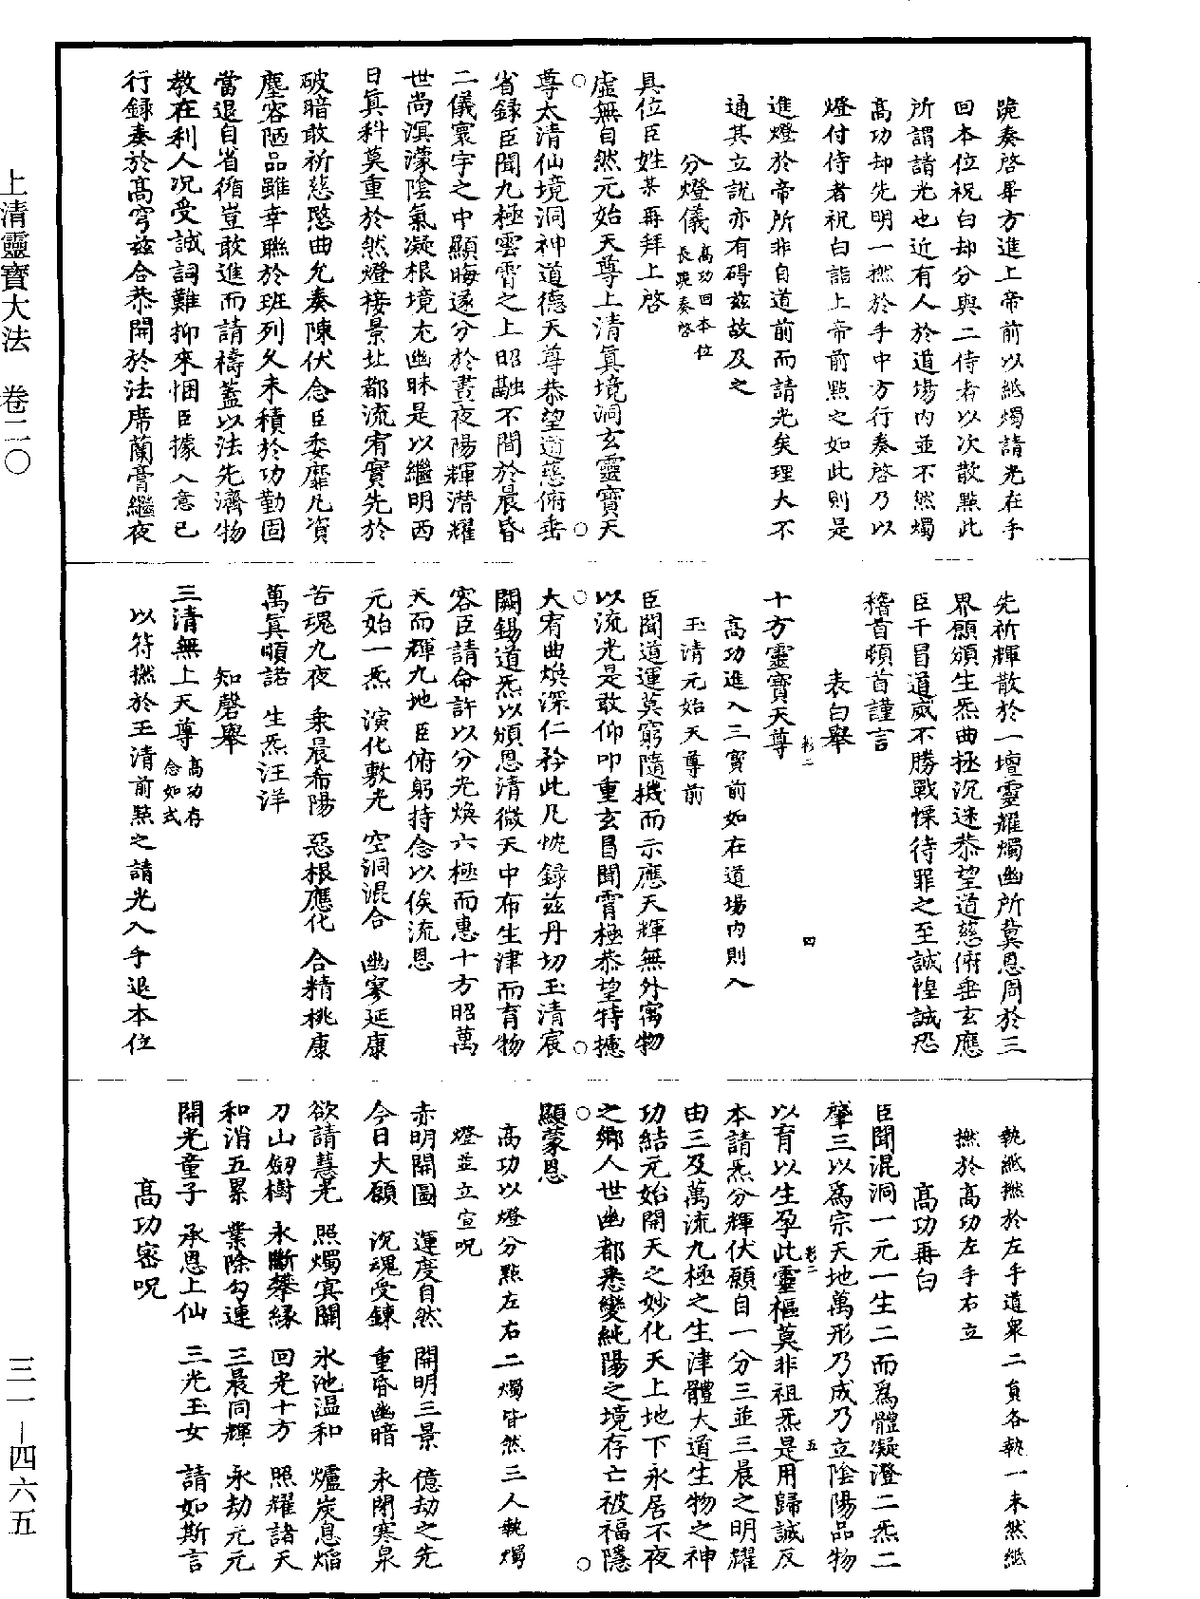 跪奏啓畢方進上帝前以紙燭請光在手
回本位祝白却分與二侍者以次散點此
所謂請光也近有人於道場內並不然燭
高功却先明一撚於手中方行奏啓乃以
燈付侍者祝白詣上帝前點之如此則是
進燈於帝所非自道前而請光矣理大不
通其立說亦有碍兹故及之
分燈儀高功回本位
長跪奏啓
具位臣姓某再拜上啓
虛無自然元始天尊上清真境洞玄靈寶天
尊太清仙境洞神道德天尊恭望道慈俯垂
省録臣聞九極雲霄之上昭融不間於晨昏
二儀寰宇之中顯晦遂分於晝夜陽輝潛耀
世尚溟濛陰氣凝根境尤幽昧是以繼明西
日真科莫重於然燈接景北都流宥實先於
破暗敢祈慈愍曲允奏陳伏念臣委靡凡資
塵容陋品雖幸聯於班列久未積於功勤固
當退自省循豈敢進而請禱蓋以法先濟物
教在利人況受誠詞難抑來悃臣據入意已
行録奏於高穹兹合恭開於法席蘭膏繼夜
先祈輝散於一壇靈耀燭幽所冀恩周於三
界願頒生炁曲拯沉迷恭望道慈俯垂玄應
臣干冒道威不勝戰慄待罪之至誠惶誠恐
稽首頓首謹言
表白舉
十方靈寶天尊
高功進入三寶前如在道場內則入
玉清元始天尊前
臣聞道運莫窮隨機而示應天輝無外寓物
以流光是敢仰叩重玄冒聞霄極恭望特摅
大宥曲煥深仁矜此凡忱録兹丹切玉清宸
闕錫道炁以頒恩清微天中布生津而育物
容臣請命許以分光煥六極而惠十方昭萬
天而輝九地臣俯躬持念以俟流恩
元始一炁 演化敷光 空洞混合 幽寥延康
苦魂九夜 秉晨希陽 惡根應化 合精桃康
萬真順諾 生炁汪洋
知磬舉
三清無上天尊高功存
念如式
以符撚於玉清前點之請光入手退本位
執紙撚於左手道衆二員各執一未然紙
撚於高功左手右立
高功再白
臣聞混洞一元一生二而爲體凝澄二炁二
肇三以爲宗天地萬形乃成乃立陰陽品物
以育以生孕此靈樞莫非祖炁是用歸誠反
本請炁分輝伏願自一分三並三晨之明耀
由三及萬流九極之生津體大道生物之神
功結元始開天之妙化天上地下永居不夜
之鄉人世幽都悉變純陽之境存亡被福隱
顯蒙恩
高功以燈分點左右二燭皆然三人執燭
燈並立宣呪
赤明開圖 運度自然 開明三景 億劫之先
今日大願 沉魂受鍊 重昏幽暗 永閉寒泉
欲請慧光 照燭冥關 氷池温和 爐炭息焰
刀山劒樹 永斷攀緣 回光十方 照耀諸天
和消五累 業除勾連 三晨同輝 永劫元元
開光童子 承恩上仙 三光玉女 請如斯言
高功密呪
上清靈寶大法 卷二〇
三一—四六五